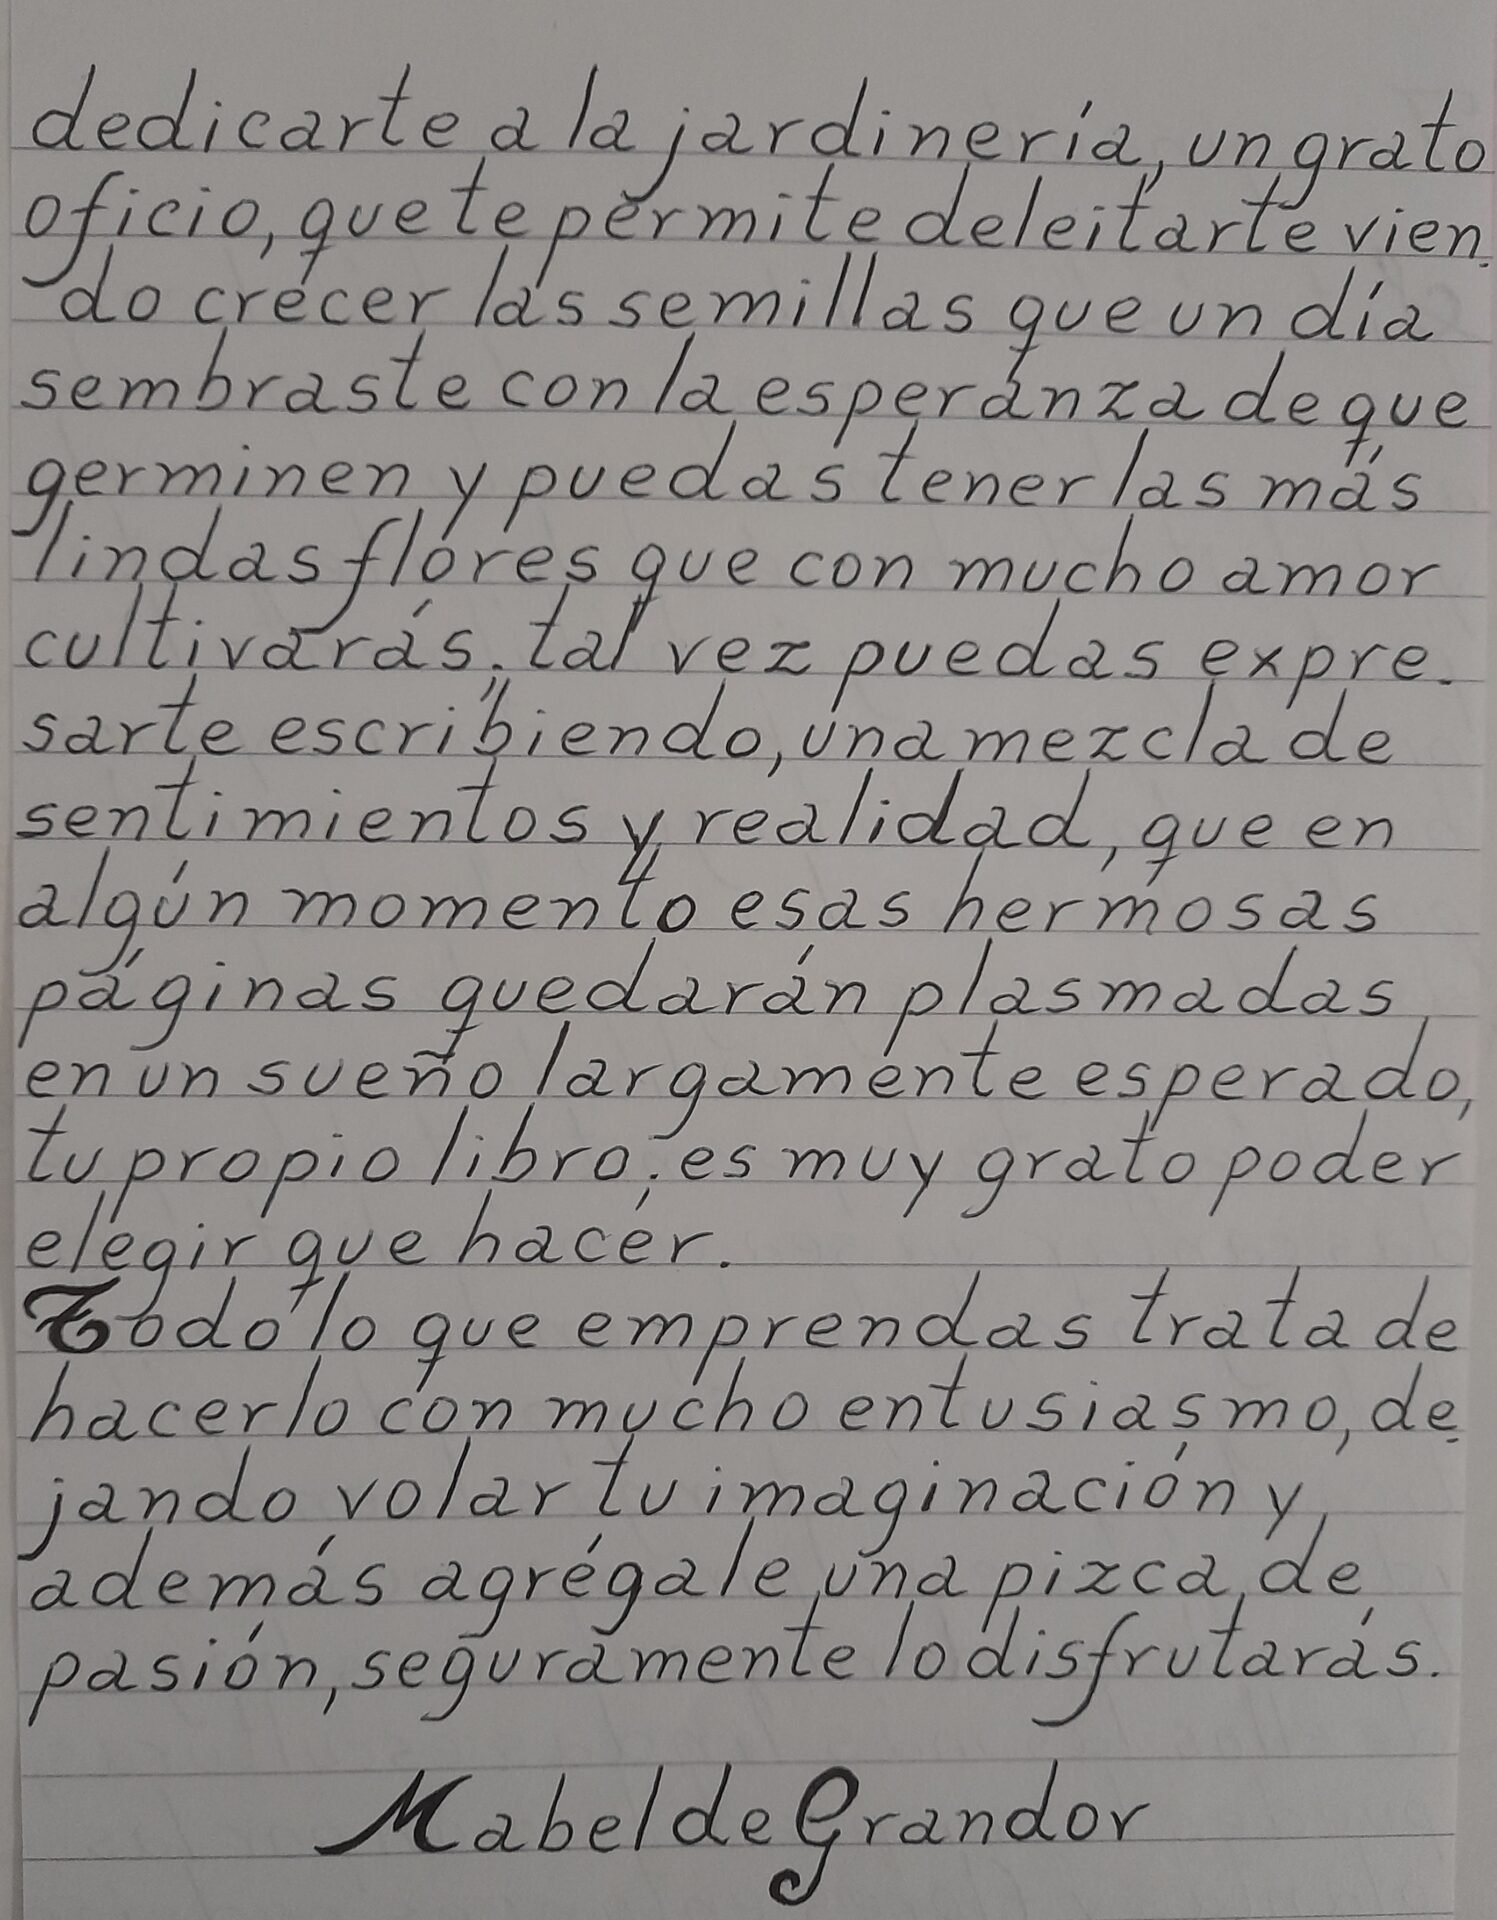 dedicarte a la jardinería, un grato
oficio, que te permite deleitarte vien-
do crecer las semillas que un día
sembraste con la esperanza de que
germinen y puedas tener las más
lindas flores que con mucho amor
cultivarás; tal vez puedas expre-
sarte escribiendo, una mezcla de
sentimientos y realidad, que en
algún momento esas hermosas
páginas quedarán plasmadas
en un sueño largamente esperado,
tu propio libro; es muy grato poder
elegir que hacer.
Todo lo que emprendas trata de
hacerlo con mucho entusiasmo, de-
jando volar tu imaginación y
además agrégale una pizca de
pasión, seguramente lo disfrutarás.
Mabel de Grandor